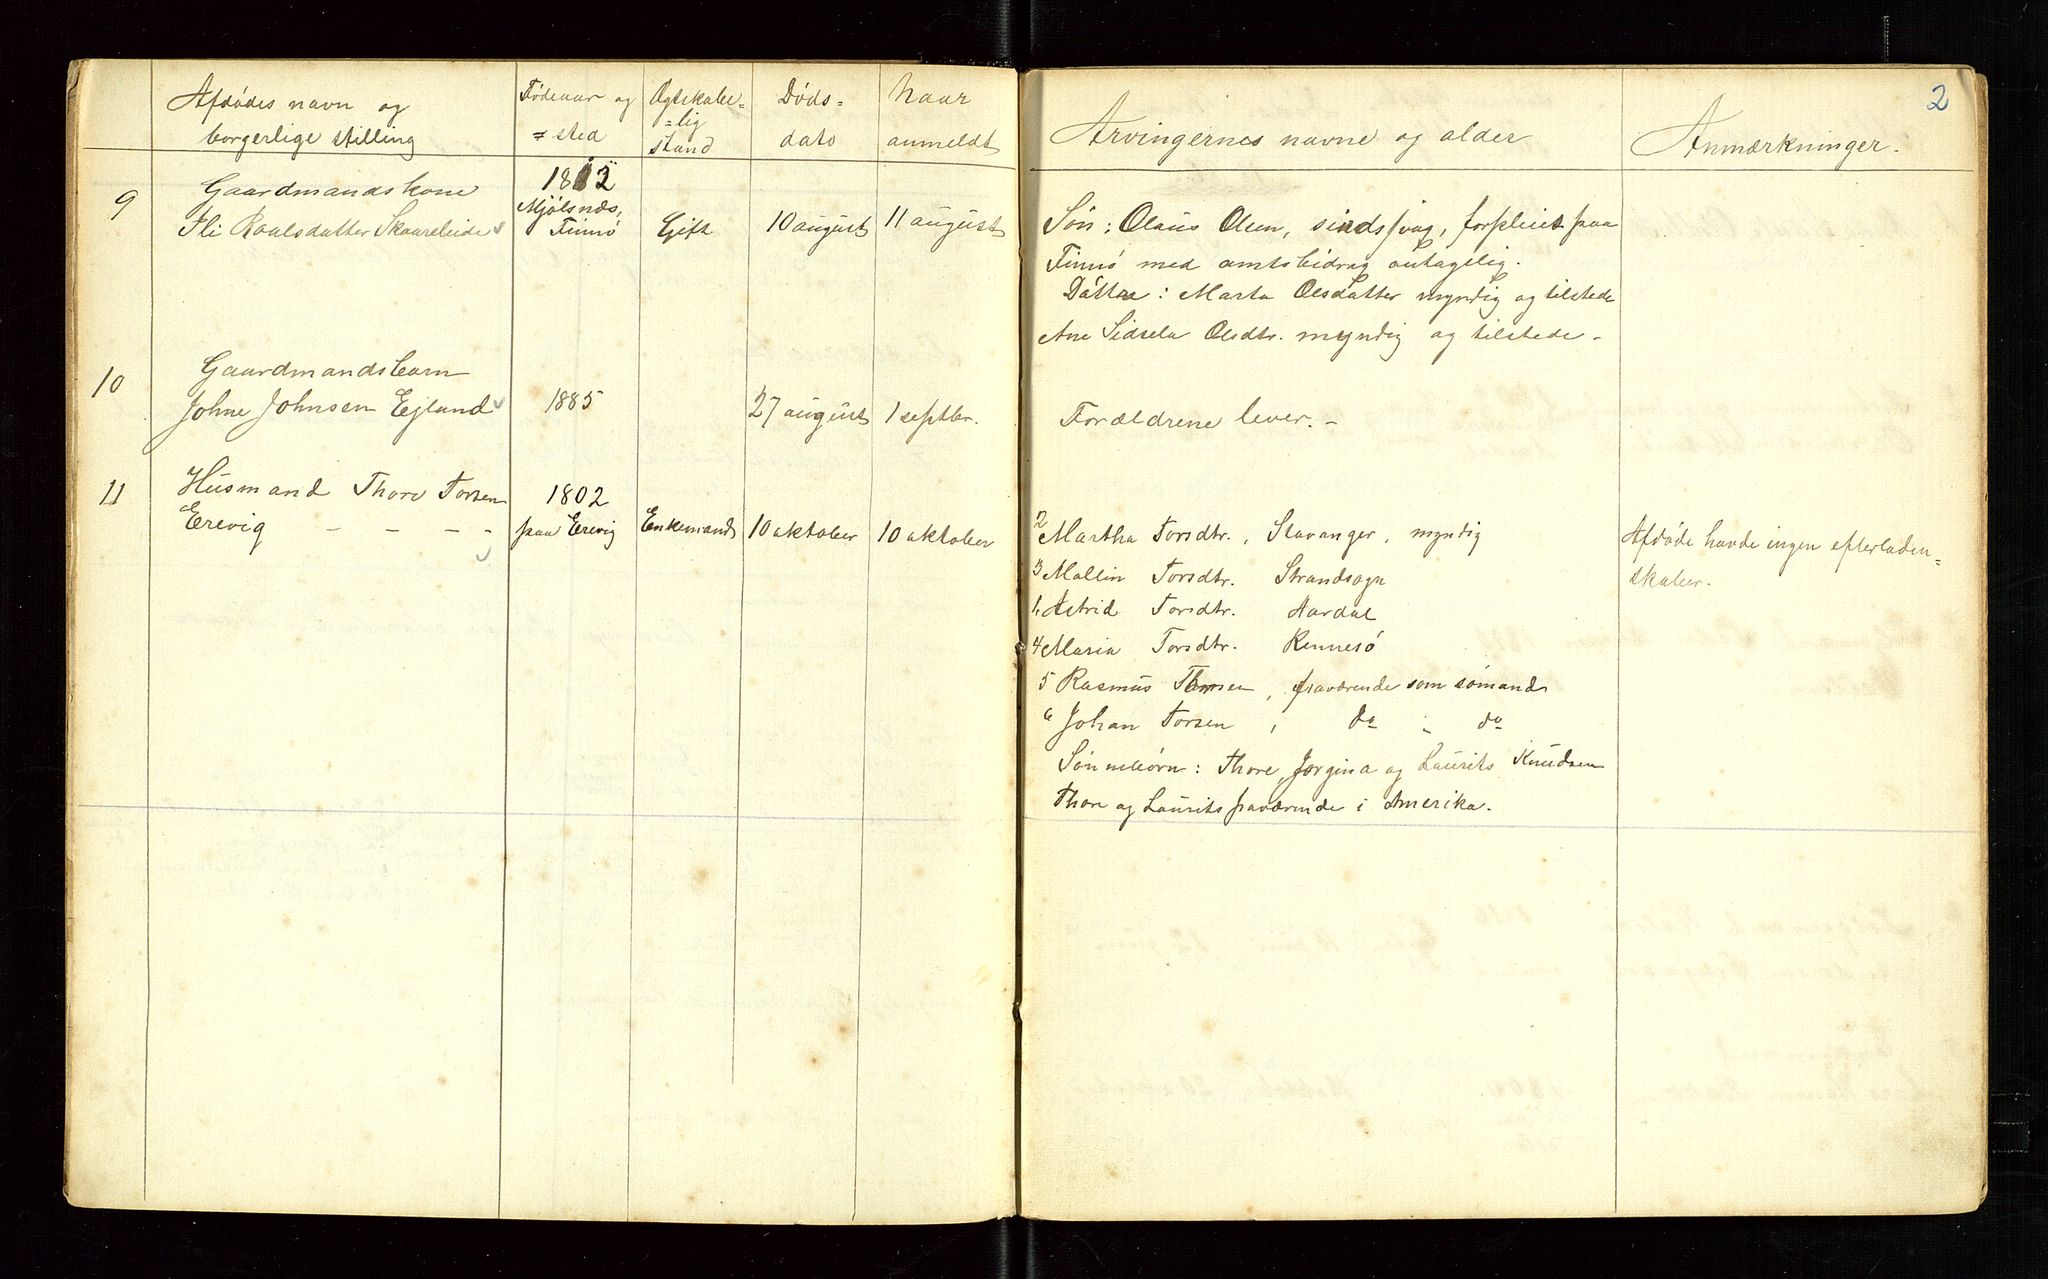 2
Afdödes navn og
borgerlige stilling
Födeaar og
= sted
Egteskabe=
=lig
stand
Döds=
dato
Naar
anmeldt
Arvingernes navne og alder
Anmærkninger.
9
Gaardmandskone
Ili Roalsdatter Skaareheide
1813
Mjölsnæs,
Finnö
Gift
10 august
11 august
Sön: Olaus Olsen, sindssvag, forpleiet paa
Finnö med amtsbidrag antagelig.
Döttre: Marta Olsdatter myndig og tilstede
Ane Sidsela Olsdtr. myndig og tilstede -
10
Gaardmandsbarn
Johne Johnsen Ejland
1885
27 august
1 septbr.
Forældrene lever. -
11
Husmand Thore Torsen
Erevig - - - -
1802
paa Erevig
Enkemand
10 oktober
10 oktober
2 Martha Torsdtr., Stavanger, myndig
3 Mallin Torsdtr. Strandsogn
1. Astrid Torsdtr. Aardal
4 Maria Torsdtr. Rennesö
5 Rasmus Torsen, fraværende som sömand
6 Johan Torsen, do " do
Sönnebörn: Thore, Jorgina og Laurits Knudsen
Thore og Laurits fraværende i Amerika.
Afdöde havde ingen efterladen=
skaber.